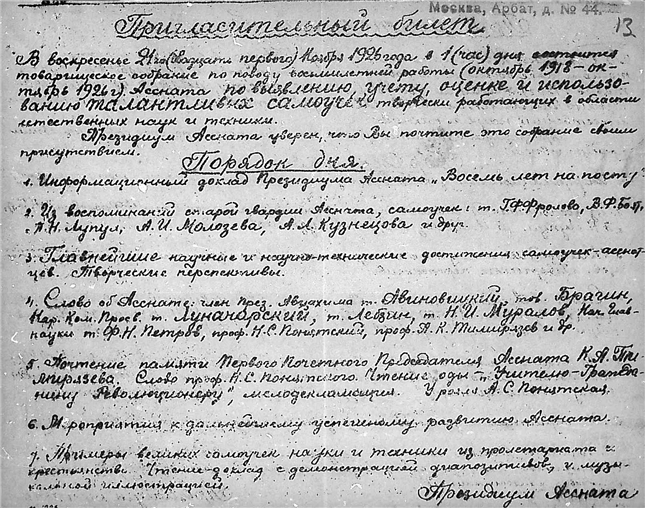 Москва, Арбат, д. № 44.
13
Пригласительный билет.
В воскресенье 21го (двадцать первого) Ноября 1926 года в 1 (час) дня состоится
товарищеское собрание по поводу восьмилетней работы (октябрь 1918 – ок-
тябрь 1926 г.) Ассната по выявлению, учету, оценке и использо-
ванию талантливых самоучек творчески работающих в области
естественных наук и техники.
Президиум Ассната уверен, что Вы почтите это собрание своим
присутствием.
Порядок дня.
1. Информационный доклад Президиума Ассната „Восемь лет на посту"
2. Из воспоминаний старой гвардии Ассната, самоучек: т. Г.Ф. Фролова, В.Ф.
А.Н. Лупул, А.И. Молозева, А.Л. Кузнецова и друг.
3. Главнейшие научные и научно-технические достижения самоучек-асснат-
цев. Творческие перспективы.
4. Слово об Ассната: член През. Авиахима т. Авиновицкий, тов. Брагин,
Нар. Ком. Просв. т. Луначарский, т. Лебзин, т. Н.И. Муралов, Нач. Глав-
науки т. Ф.Н. Петров, проф. Н.С. Понятский, проф. А.К. Тимирязов и др.
5. Почтение памяти Первого Почетного Председателя Ассната К.А. Ти-
мирязева. Слово проф. Н.С. Понятского. Чтение оды – „Учителю-Гражда-
нину Революционеру" мелодекламация. У рояля А.С. Понятская.
6. Мероприятия к дальнейшему успешному развитию Ассната.
7. Примеры великих самоучек науки и техники из пролетариата и
крестьянства. Чтение-доклад с демонстрацией диапозитивов, и музы-
кальной иллюстрацией.
Президиум Ассната